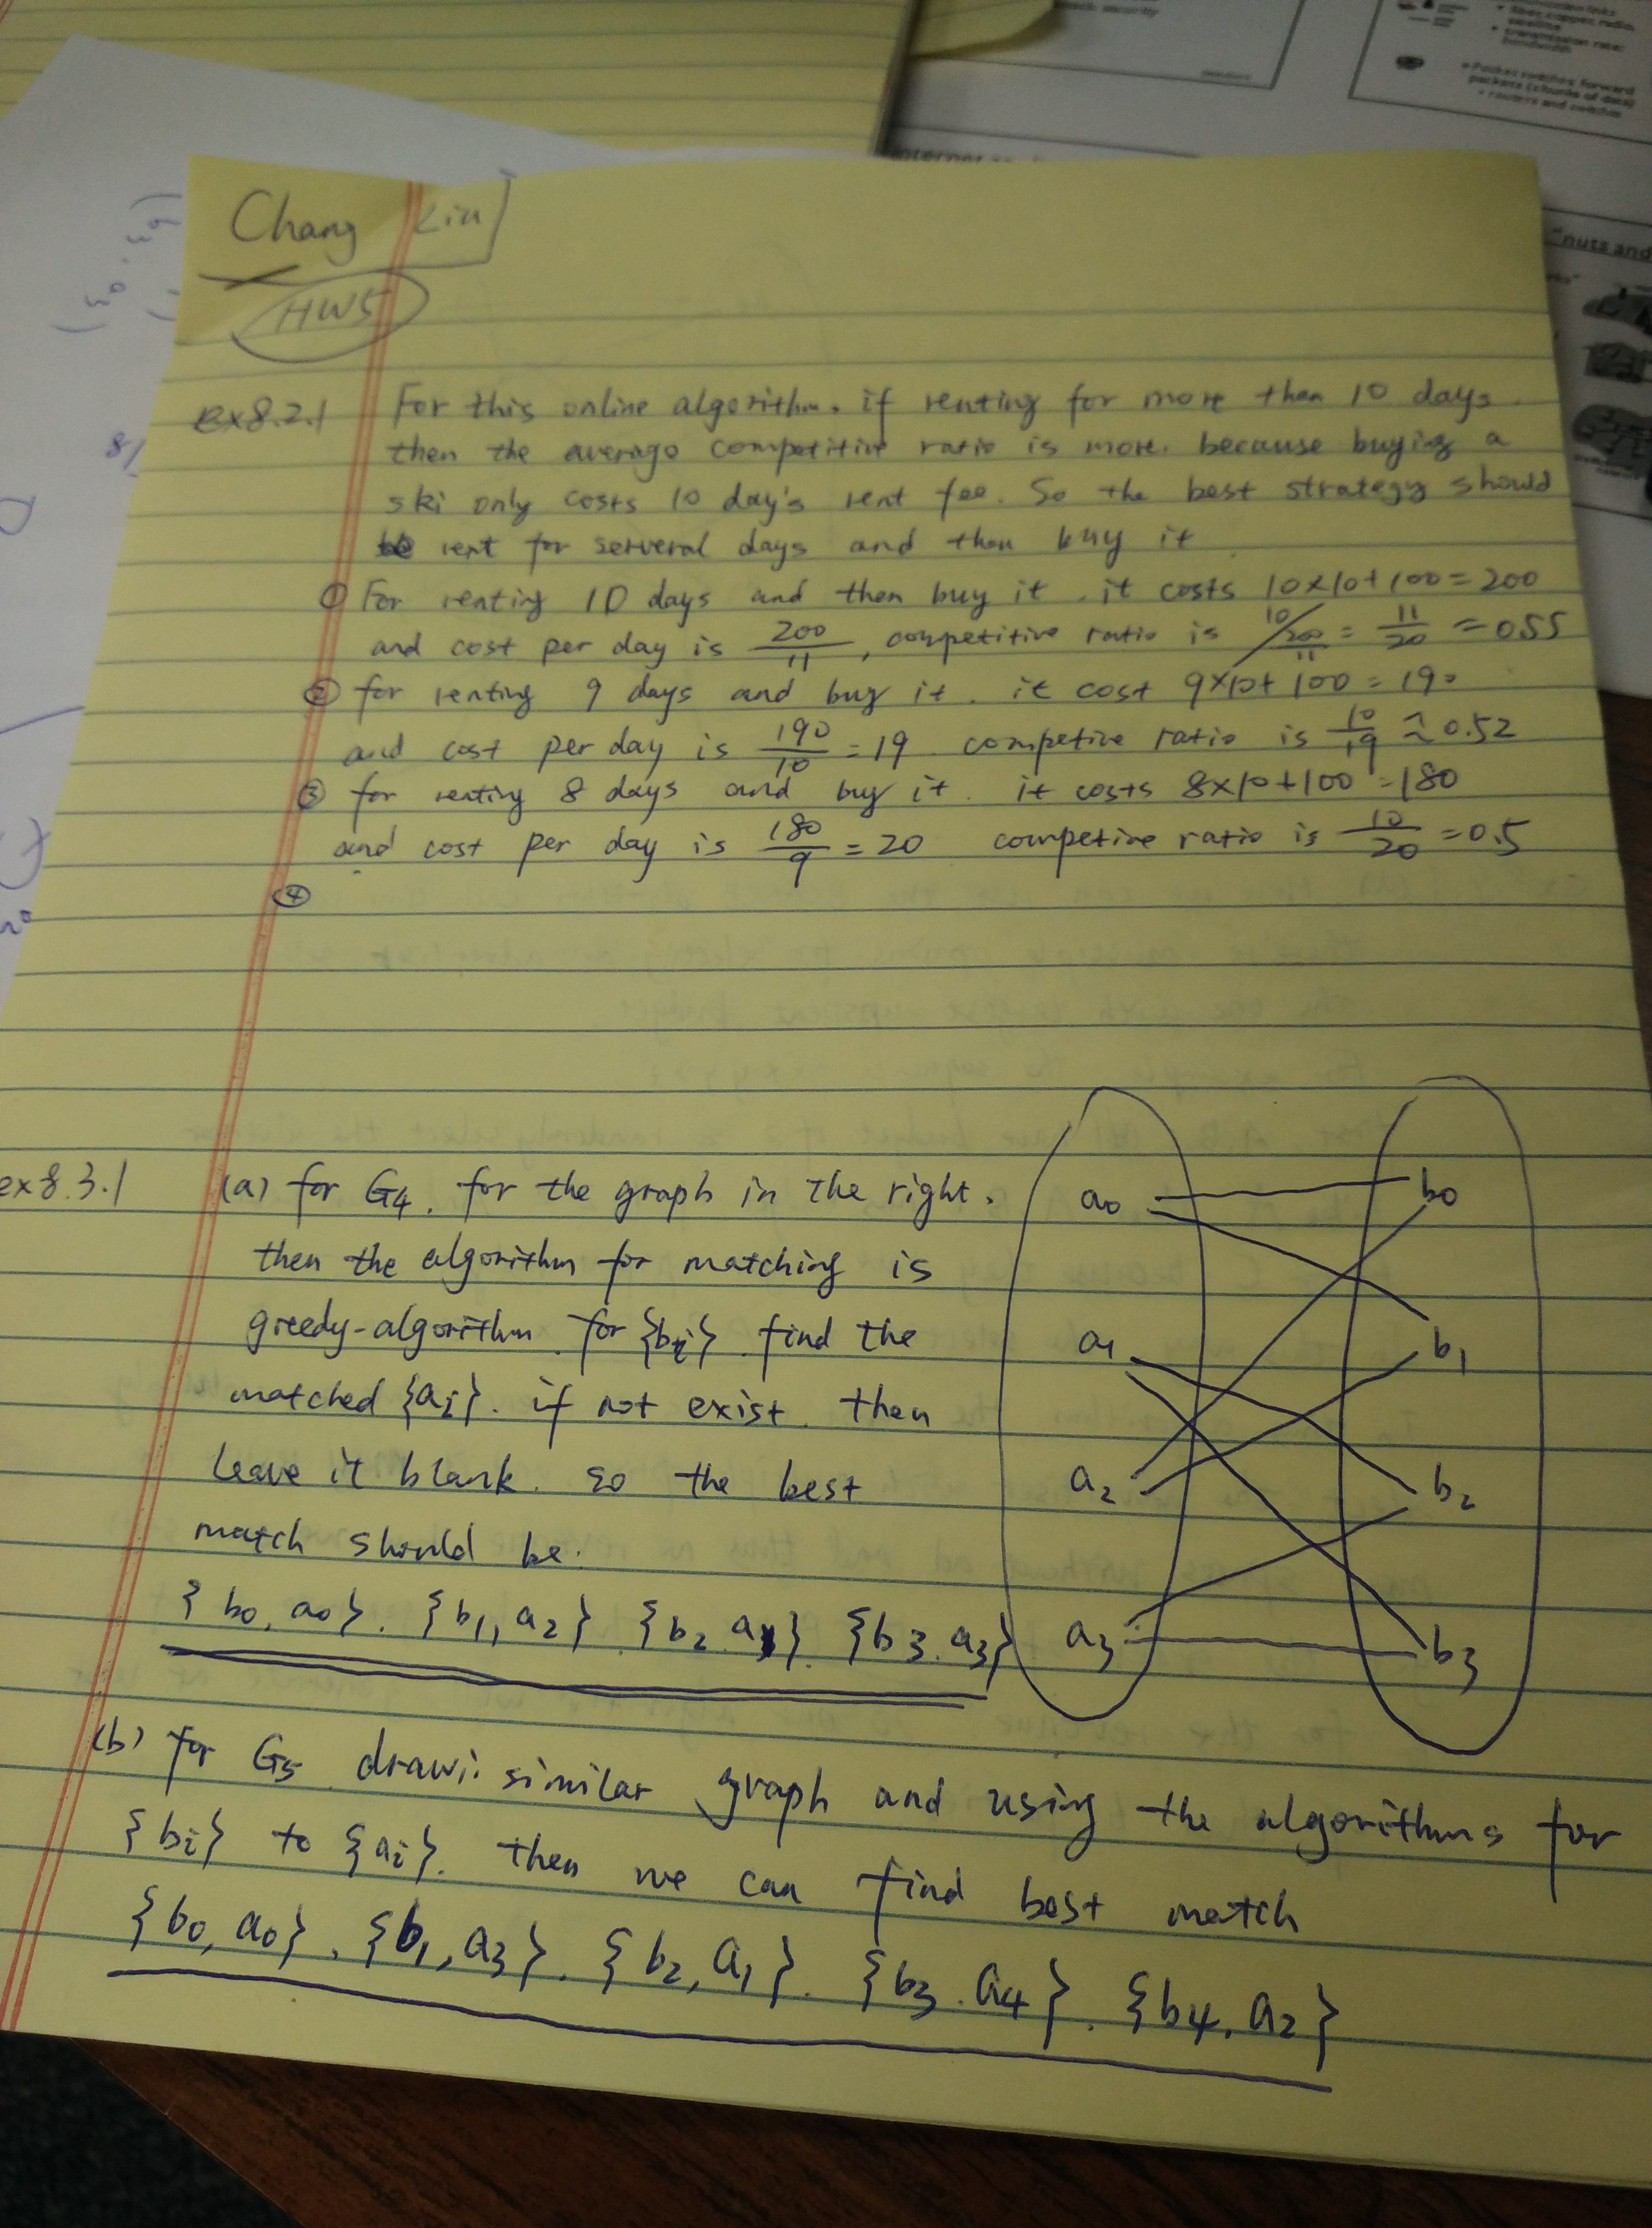 security
fiber, copper, radio,
satellite
transmission rate:
bandwidth
Packet switches: forward
packets (chunks of data)
routers and switches
"nuts and
Chang Liu
HW5
ex8.2.1 For this online algorithm, if renting for more than 10 days
then the average competitive ratio is more. because buying a
ski only costs 10 day's rent fee. So the best strategy should
be rent for serveral days and then buy it
① For renting 10 days and then buy it. it costs 10×10+100=200
and cost per day is 200/11, competitive ratio is 10/(200/11) = 11/20 = 0.55
② for renting 9 days and buy it. it cost 9×10+100=190
and cost per day is 190/10 = 19. competive ratio is 10/19 ≈ 0.52
③ for renting 8 days and buy it. it costs 8×10+100=180
and cost per day is 180/9 = 20 competive ratio is 10/20 = 0.5
④
ex8.3.1 (a) for G4, for the graph in the right.
then the algorithm for matching is
greedy-algorithm for {bi} find the
matched {ai}. if not exist. then
leave it blank. so the best
match should be:
{b0, a0}. {b1, a2}. {b2. a1}. {b3. a3}
a0 b0
a1 b1
a2 b2
a3 b3
(b) for G5 draw similar graph and using the algorithms for
{bi} to {ai}. then we can find best match
{b0, a0}. {b1, a3}. {b2, a1}. {b3. a4}. {b4, a2}